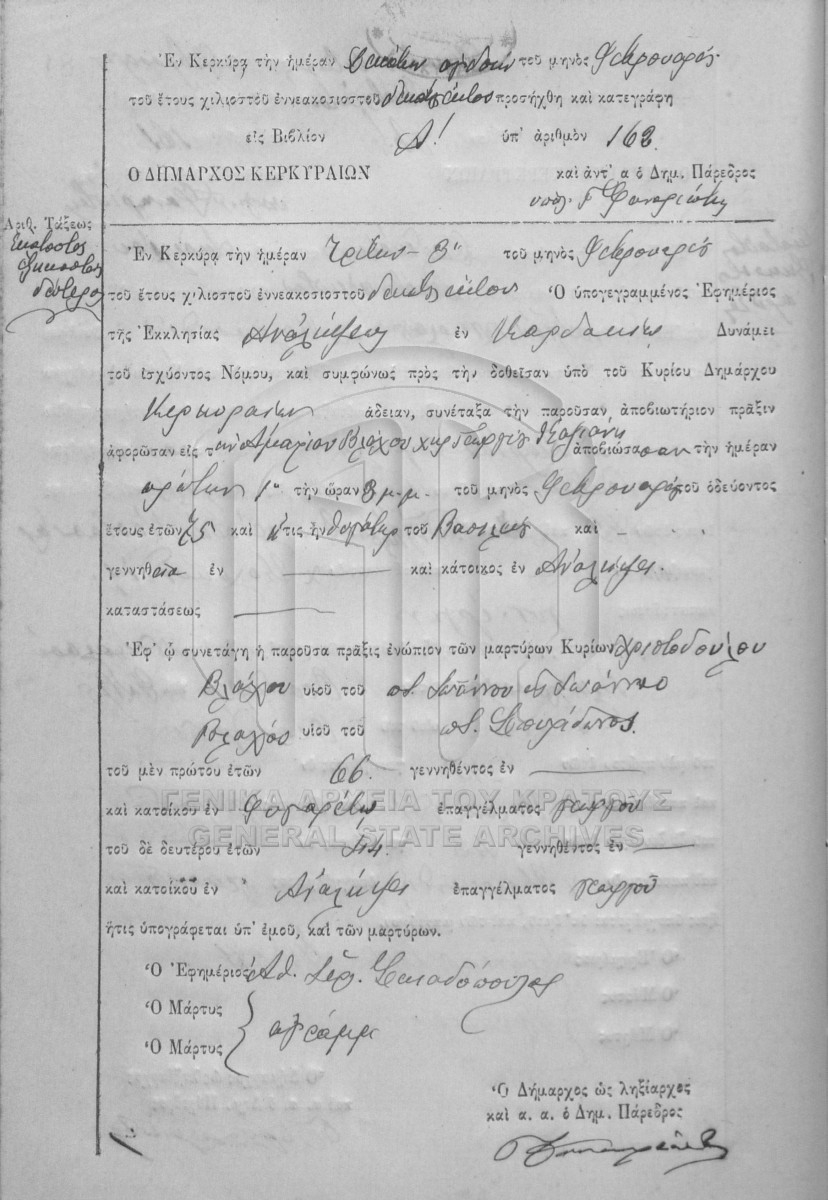 Ἐν Κερκύρᾳ τὴν ἡμέραν δεκάτην ὀγδόην τοῦ μηνὸς Φεβρουαρίου
τοῦ ἔτους χιλιοστοῦ ἐννεακοσιοστοῦ δεκάτου ἕκτου προσήχθη καὶ κατεγράφη
εἰς Βιβλίον Α! ὑπ' ἀριθμὸν 162
Ο ΔΗΜΑΡΧΟΣ ΚΕΡΚΥΡΑΙΩΝ καὶ ἀντ' α ὁ Δημ. Πάρεδρος
Ἀριθ. Τάξεως
Ἑκατοστὸς
ἑξηκοστὸς
δεύτερος
Ἐν Κερκύρᾳ τὴν ἡμέραν Τρίτην - 3ην τοῦ μηνὸς Φεβρουαρίου
τοῦ ἔτους χιλιοστοῦ ἐννεακοσιοστοῦ δεκάτου ἕκτου Ὁ ὑπογεγραμμένος Ἐφημέριος
τῆς Ἐκκλησίας Ἀναλήψεως ἐν Δυνάμει
τοῦ ἰσχύοντος Νόμου, καὶ συμφώνως πρὸς τὴν δοθεῖσαν ὑπὸ τοῦ Κυρίου Δημάρχου
Κερκυραίων ἄδειαν, συνέταξα τὴν παροῦσαν ἀποβιωτήριον πρᾶξιν
ἀφορῶσαν εἰς τὴν Βλάχου χήρ. Γεωργίου ἀποβιώσασαν τὴν ἡμέραν
πρώτην 1ην τὴν ὥραν 8 μ.μ. τοῦ μηνὸς Φεβρουαρίου τοῦ ὁδεύοντος
ἔτους ἐτῶν 75 καὶ ἥτις ἦν θυγάτηρ τοῦ Βασιλείου καὶ —
γεννηθεῖσα ἐν — καὶ κάτοικος ἐν Ἀναλήψει.
καταστάσεως —
Ἐφ' ᾧ συνετάγη ἡ παροῦσα πρᾶξις ἐνώπιον τῶν μαρτύρων Κυρίων Χριστοδούλου
Βλάχου υἱοῦ τοῦ ποτ. Ἰωάννου καὶ Ἰωάννου
Βλάχου υἱοῦ τοῦ ποτ. Σπυρίδωνος.
τοῦ μὲν πρώτου ἐτῶν 66 γεννηθέντος ἐν —
καὶ κατοίκου ἐν ἐπαγγέλματος γεωργοῦ
τοῦ δὲ δευτέρου ἐτῶν 44 γεννηθέντος ἐν —
καὶ κατοίκου ἐν Ἀναλήψει ἐπαγγέλματος γεωργοῦ
ἥτις ὑπογράφεται ὑπ' ἐμοῦ, καὶ τῶν μαρτύρων.
Ὁ Ἐφημέριος Ἀθ. Ἱερ.
Ὁ Μάρτυς
Ὁ Μάρτυς
ἀγράμμ.
Ὁ Δήμαρχος ὡς ληξίαρχος
καὶ α. α. ὁ Δημ. Πάρεδρος
ΓΕΝΙΚΑ ΑΡΧΕΙΑ ΤΟΥ ΚΡΑΤΟΥΣ
GENERAL STATE ARCHIVES